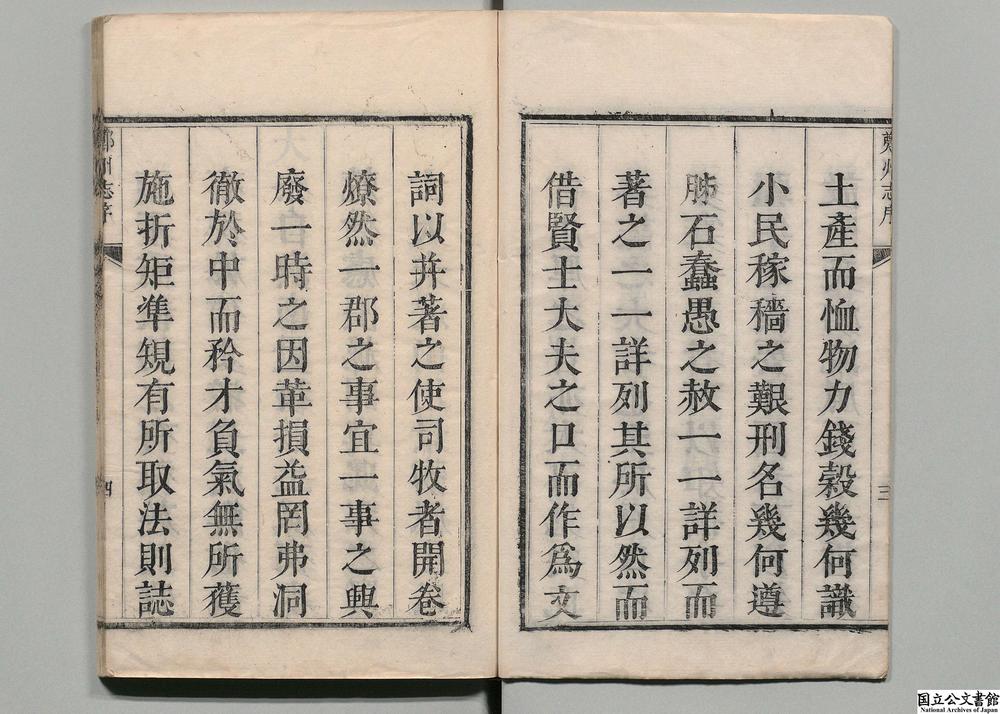 鄭州志序
三
土產而恤物力錢穀幾何識
小民稼穡之艱刑名幾何遵
肺石蠢愚之赦一一詳列而
著之一一詳列其所以然而
借賢士大夫之口而作爲文
詞以幷著之使司牧者開卷
燎然一郡之事宜一事之興
廢一時之因革損益罔弗洞
徹於中而矜才負氣無所獲
施折矩準規有所取法則誌
州志序
四
国立公文書館
National Archives of Japan